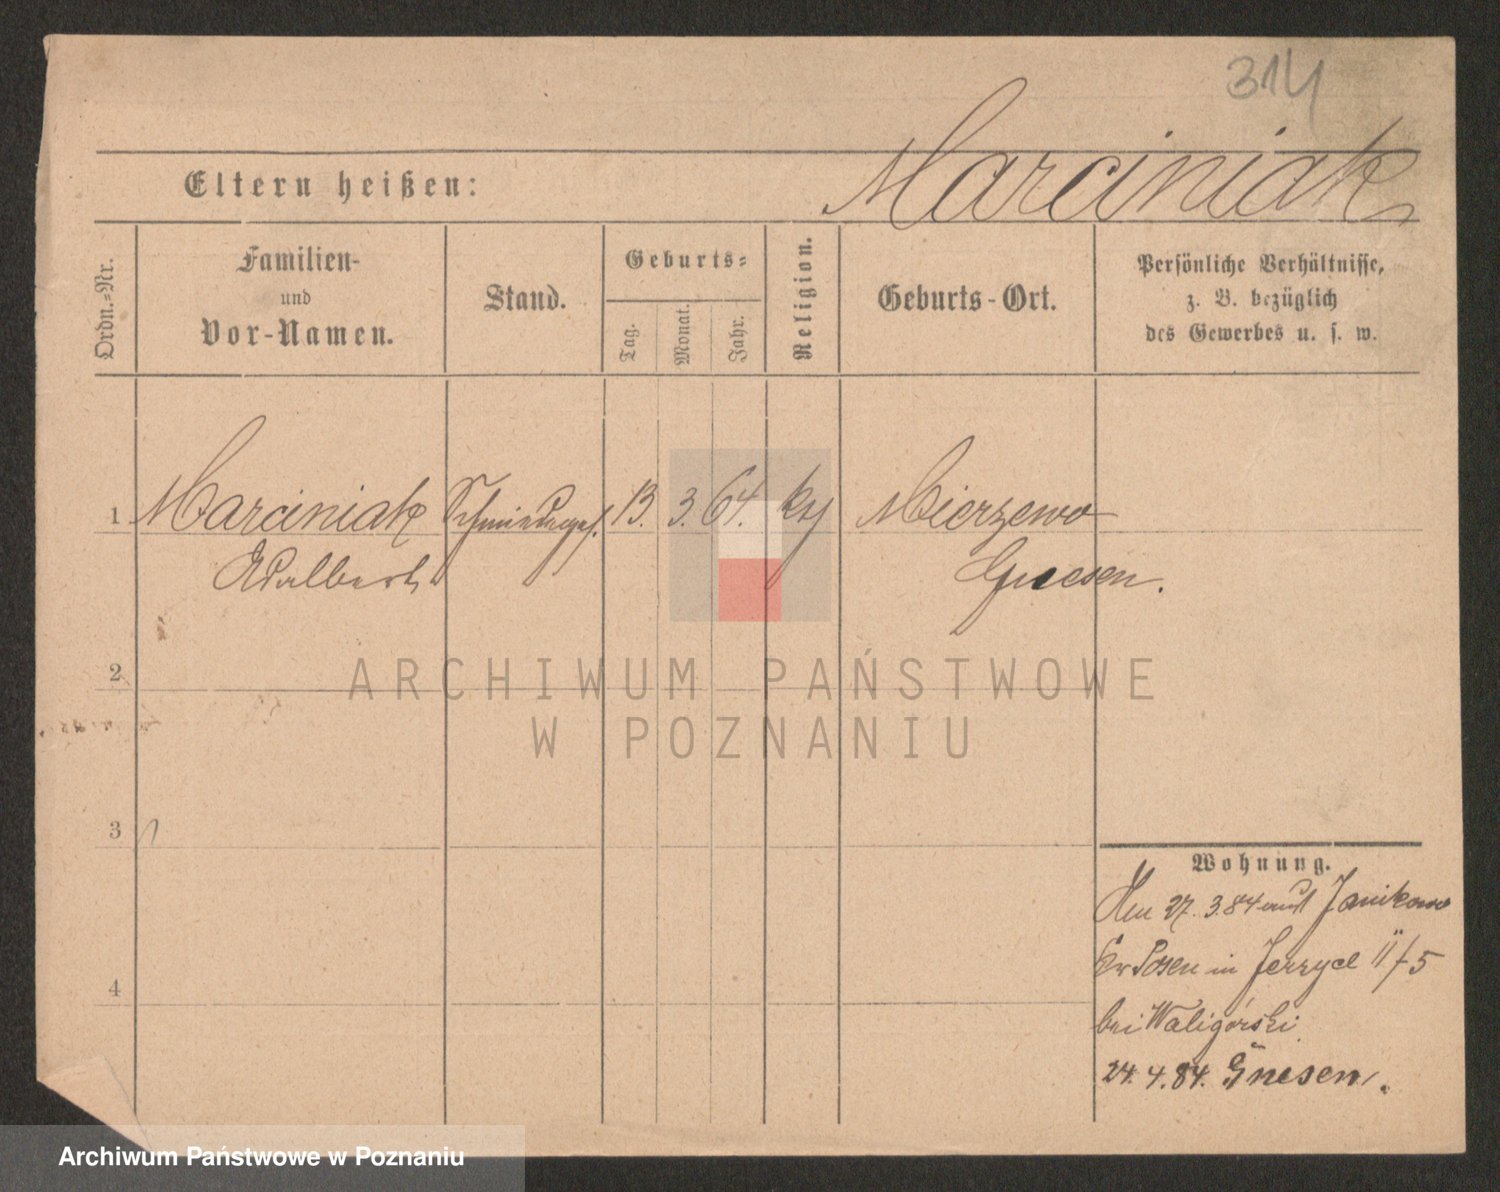 314
Marciniak
Eltern heißen:
Ordn.-Nr.
Familien-
und
Vor-Namen.
Stand.
Geburts-
Tag.
Monat.
Jahr.
Religion.
Geburts-Ort.
Persönliche Verhältnisse,
z. B. bezüglich
des Gewerbes u. s. w.
1 Marciniak Schmiedeges. 13. 3. 64. Mierzewo
Adalbert Gnesen.
2
3
4
Wohnung.
27. 3. 84 aus Janikowo
Kr Posen in Jerzyce II/5
bei Waligórski
24. 4. 84. Gnesen.
ARCHIWUM PAŃSTWOWE
W POZNANIU
Archiwum Państwowe w Poznaniu